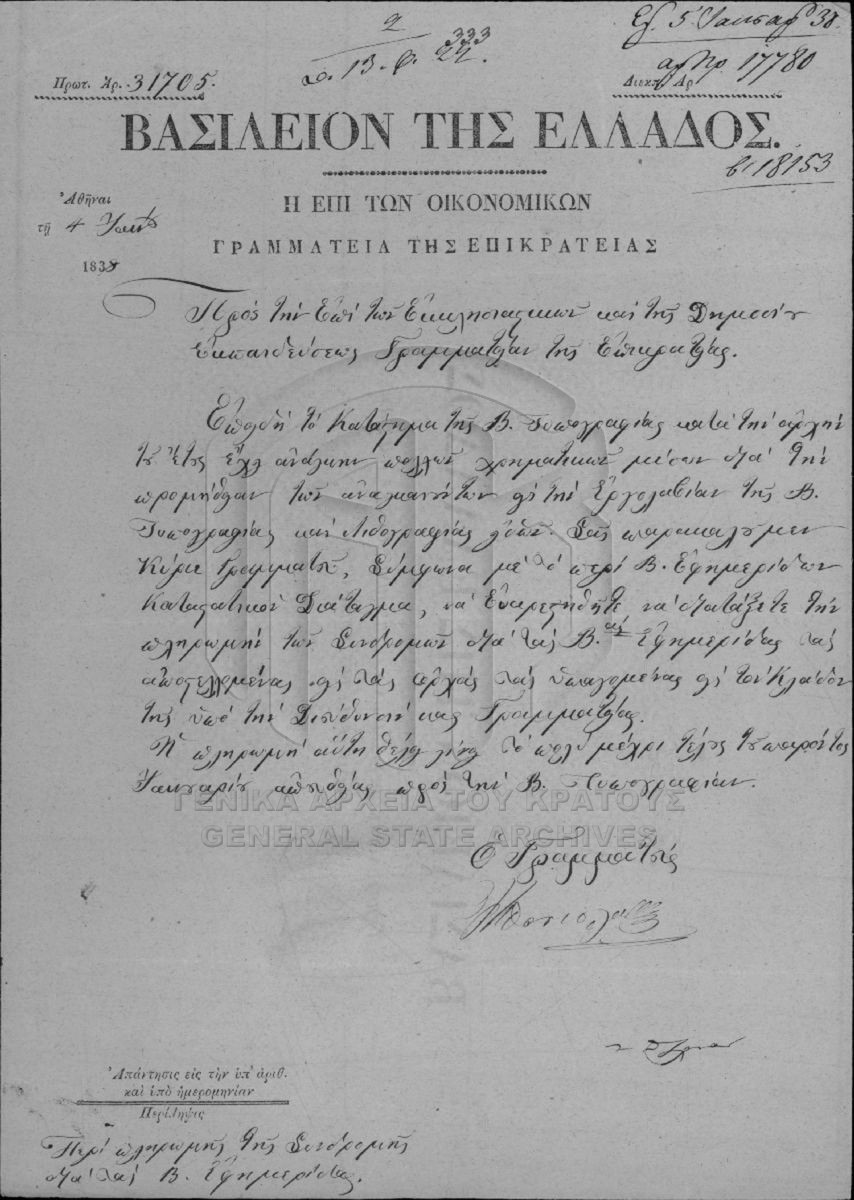 2
333
Σ. 13. Φ. 22.
Ἐλ. 5 Ἰανουαρ 38.
Πρωτ. Ἀρ. 31705.
ἀρ Πρ 17780
Διεκπ Αρ
ΒΑΣΙΛΕΙΟΝ ΤΗΣ ΕΛΛΑΔΟΣ.
18153
Ἀθῆναι
τῇ 4 Ἰαν
1838
Η ΕΠΙ ΤΩΝ ΟΙΚΟΝΟΜΙΚΩΝ
ΓΡΑΜΜΑΤΕΙΑ ΤΗΣ ΕΠΙΚΡΑΤΕΙΑΣ
Πρὸς τὴν Ἐπὶ τῶν Ἐκκλησιαστικῶν καὶ τῆς Δημοσίου
Ἐκπαιδεύσεως Γραμματείαν τῆς Ἐπικρατείας.
Ἐπειδὴ τὸ Κατάστημα τῆς Β. Τυπογραφίας κατὰ τὴν ἀρχὴν
τοῦ ἔτους ἔχει ἀνάγκην πολλῶν χρηματικῶν μέσων διὰ τὴν
προμήθειαν τῶν ἀναγκαιούντων εἰς τὴν Ἐργολαβίαν τῆς Β.
Τυπογραφίας καὶ Λιθογραφίας εἰδῶν. Σᾶς παρακαλοῦμεν
Κύριε Γραμματεῦ, Σύμφωνα μὲ τὸ περὶ Β. Ἐφημερίδων
Καταστατικὸν Διάταγμα, νὰ Εὐαρεστηθῆτε νὰ διατάξετε τὴν
πληρωμὴν τῶν Συνδρομῶν διὰ τὰς Β.ὰς Ἐφημερίδας τὰς
ἀποστελλομένας εἰς τὰς ἀρχὰς τὰς ὑπαγομένας εἰς τὸν Κλάδον
τῆς ὑπὸ τὴν Διεύθυνσίν σας Γραμματείας.
Ἡ πληρωμὴ αὕτη θέλει γίνει τὸ πολὺ μέχρι τέλους τοῦ παρόντος
Ἰανουαρίου ἀπευθείας πρὸς τὴν Β. Τυπογραφίαν.
ΓΕΝΙΚΑ ΑΡΧΕΙΑ ΤΟΥ ΚΡΑΤΟΥΣ
GENERAL STATE ARCHIVES
Ὁ Γραμματεὺς
Ἀπάντησις εἰς τὴν ὑπ' ἀριθ.
καὶ ὑπὸ ἡμερομηνίαν
Περίληψις
Περὶ πληρωμῆς τῆς Συνδρομῆς
διὰ τὰς Β. Ἐφημερίδας.